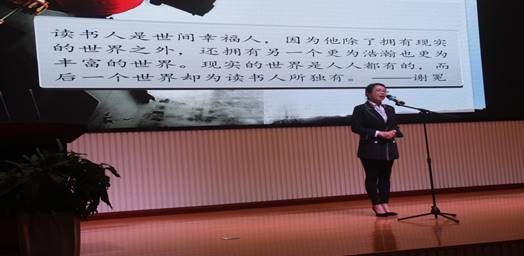 读书人是世间幸福人，因为他除了拥有现实
的世界之外，还拥有另一个更为浩瀚也更为
丰富的世界。现实的世界是人人都有的，而
后一个世界却为读书人所独有。——谢冕